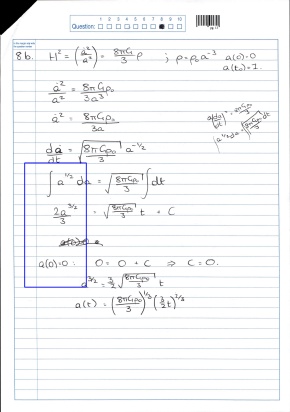 Question: 1 2 3 4 5 6 7 8 9 10
8b. H² = (ȧ²/a²) = 8πG/3 ρ ; ρ = ρ₀a⁻³ a(0)=0
a(t₀)=1.
ȧ²/a² = 8πGρ₀/3a³
ȧ² = 8πGρ₀/3a
da/dt = √(8πGρ₀/3) a^(-1/2)
∫ a^(1/2) da = √(8πGρ₀/3) ∫ dt
2a^(3/2)/3 = √(8πGρ₀/3) t + C
a(0)=0 : 0 = 0 + C ⇒ C = 0.
a^(3/2) = 3/2 √(8πGρ₀/3) t
a(t) = (8πGρ₀/3)^(1/3) (3/2 t)^(2/3)